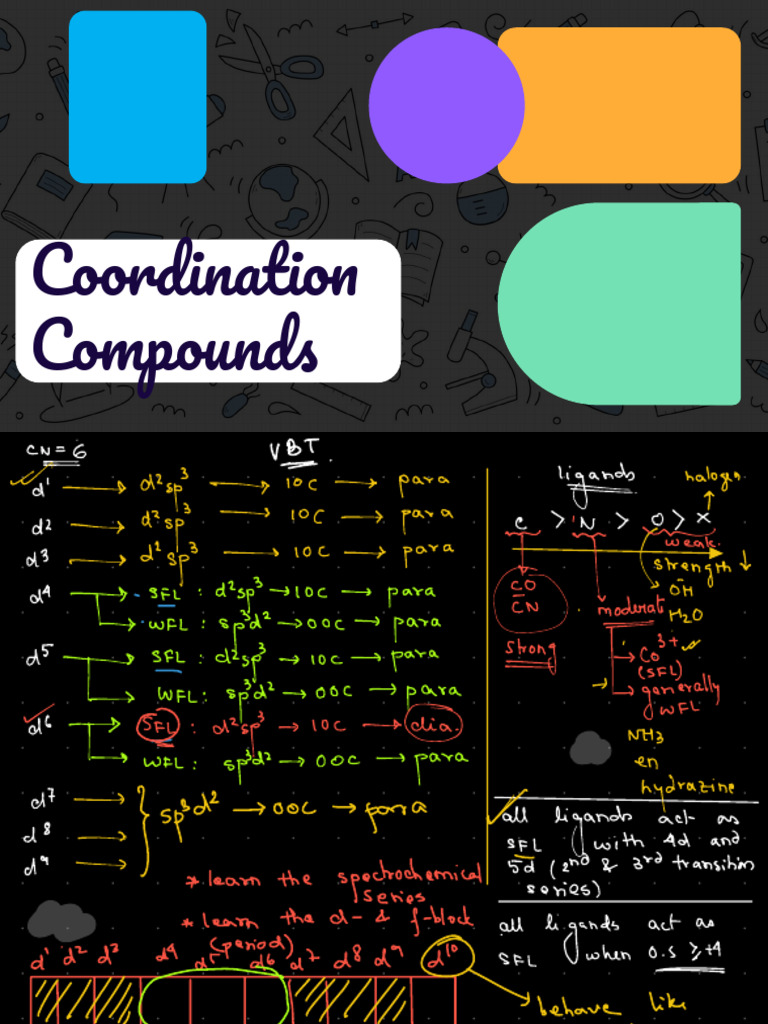 Coordination
Compounds
CN = 6
VBT
d¹ → d²sp³ → IOC → para
d2 → d²sp³ → IOC → para
d3 → d²sp³ → IOC → para
d4 → SFL : d²sp³ → IOC → para
→ WFL : sp³d² → OOC → para
d5 → SFL : d²sp³ → IOC → para
→ WFL : sp³d² → OOC → para
d6 → SFL : d²sp³ → IOC → dia.
→ WFL : sp³d² → OOC → para
d7 →
d8 →
d9 →
} sp³d² → OOC → para
* learn the spectrochemical
series
* learn the d- & f-block
(period)
d¹ d² d³ d4 d5 d6 d7 d8 d9 d10
behave like
ligands
halogen
C > N > O > X
weak
strength ↓
CO
CN
strong
moderat
→ Co3+
(SFL)
→ generally
WFL
OH
H2O
NH3
en
hydrazine
all ligands act as
SFL with 4d and
5d (2nd & 3rd transition
series)
all ligands act as
SFL when O.S ≥ +4